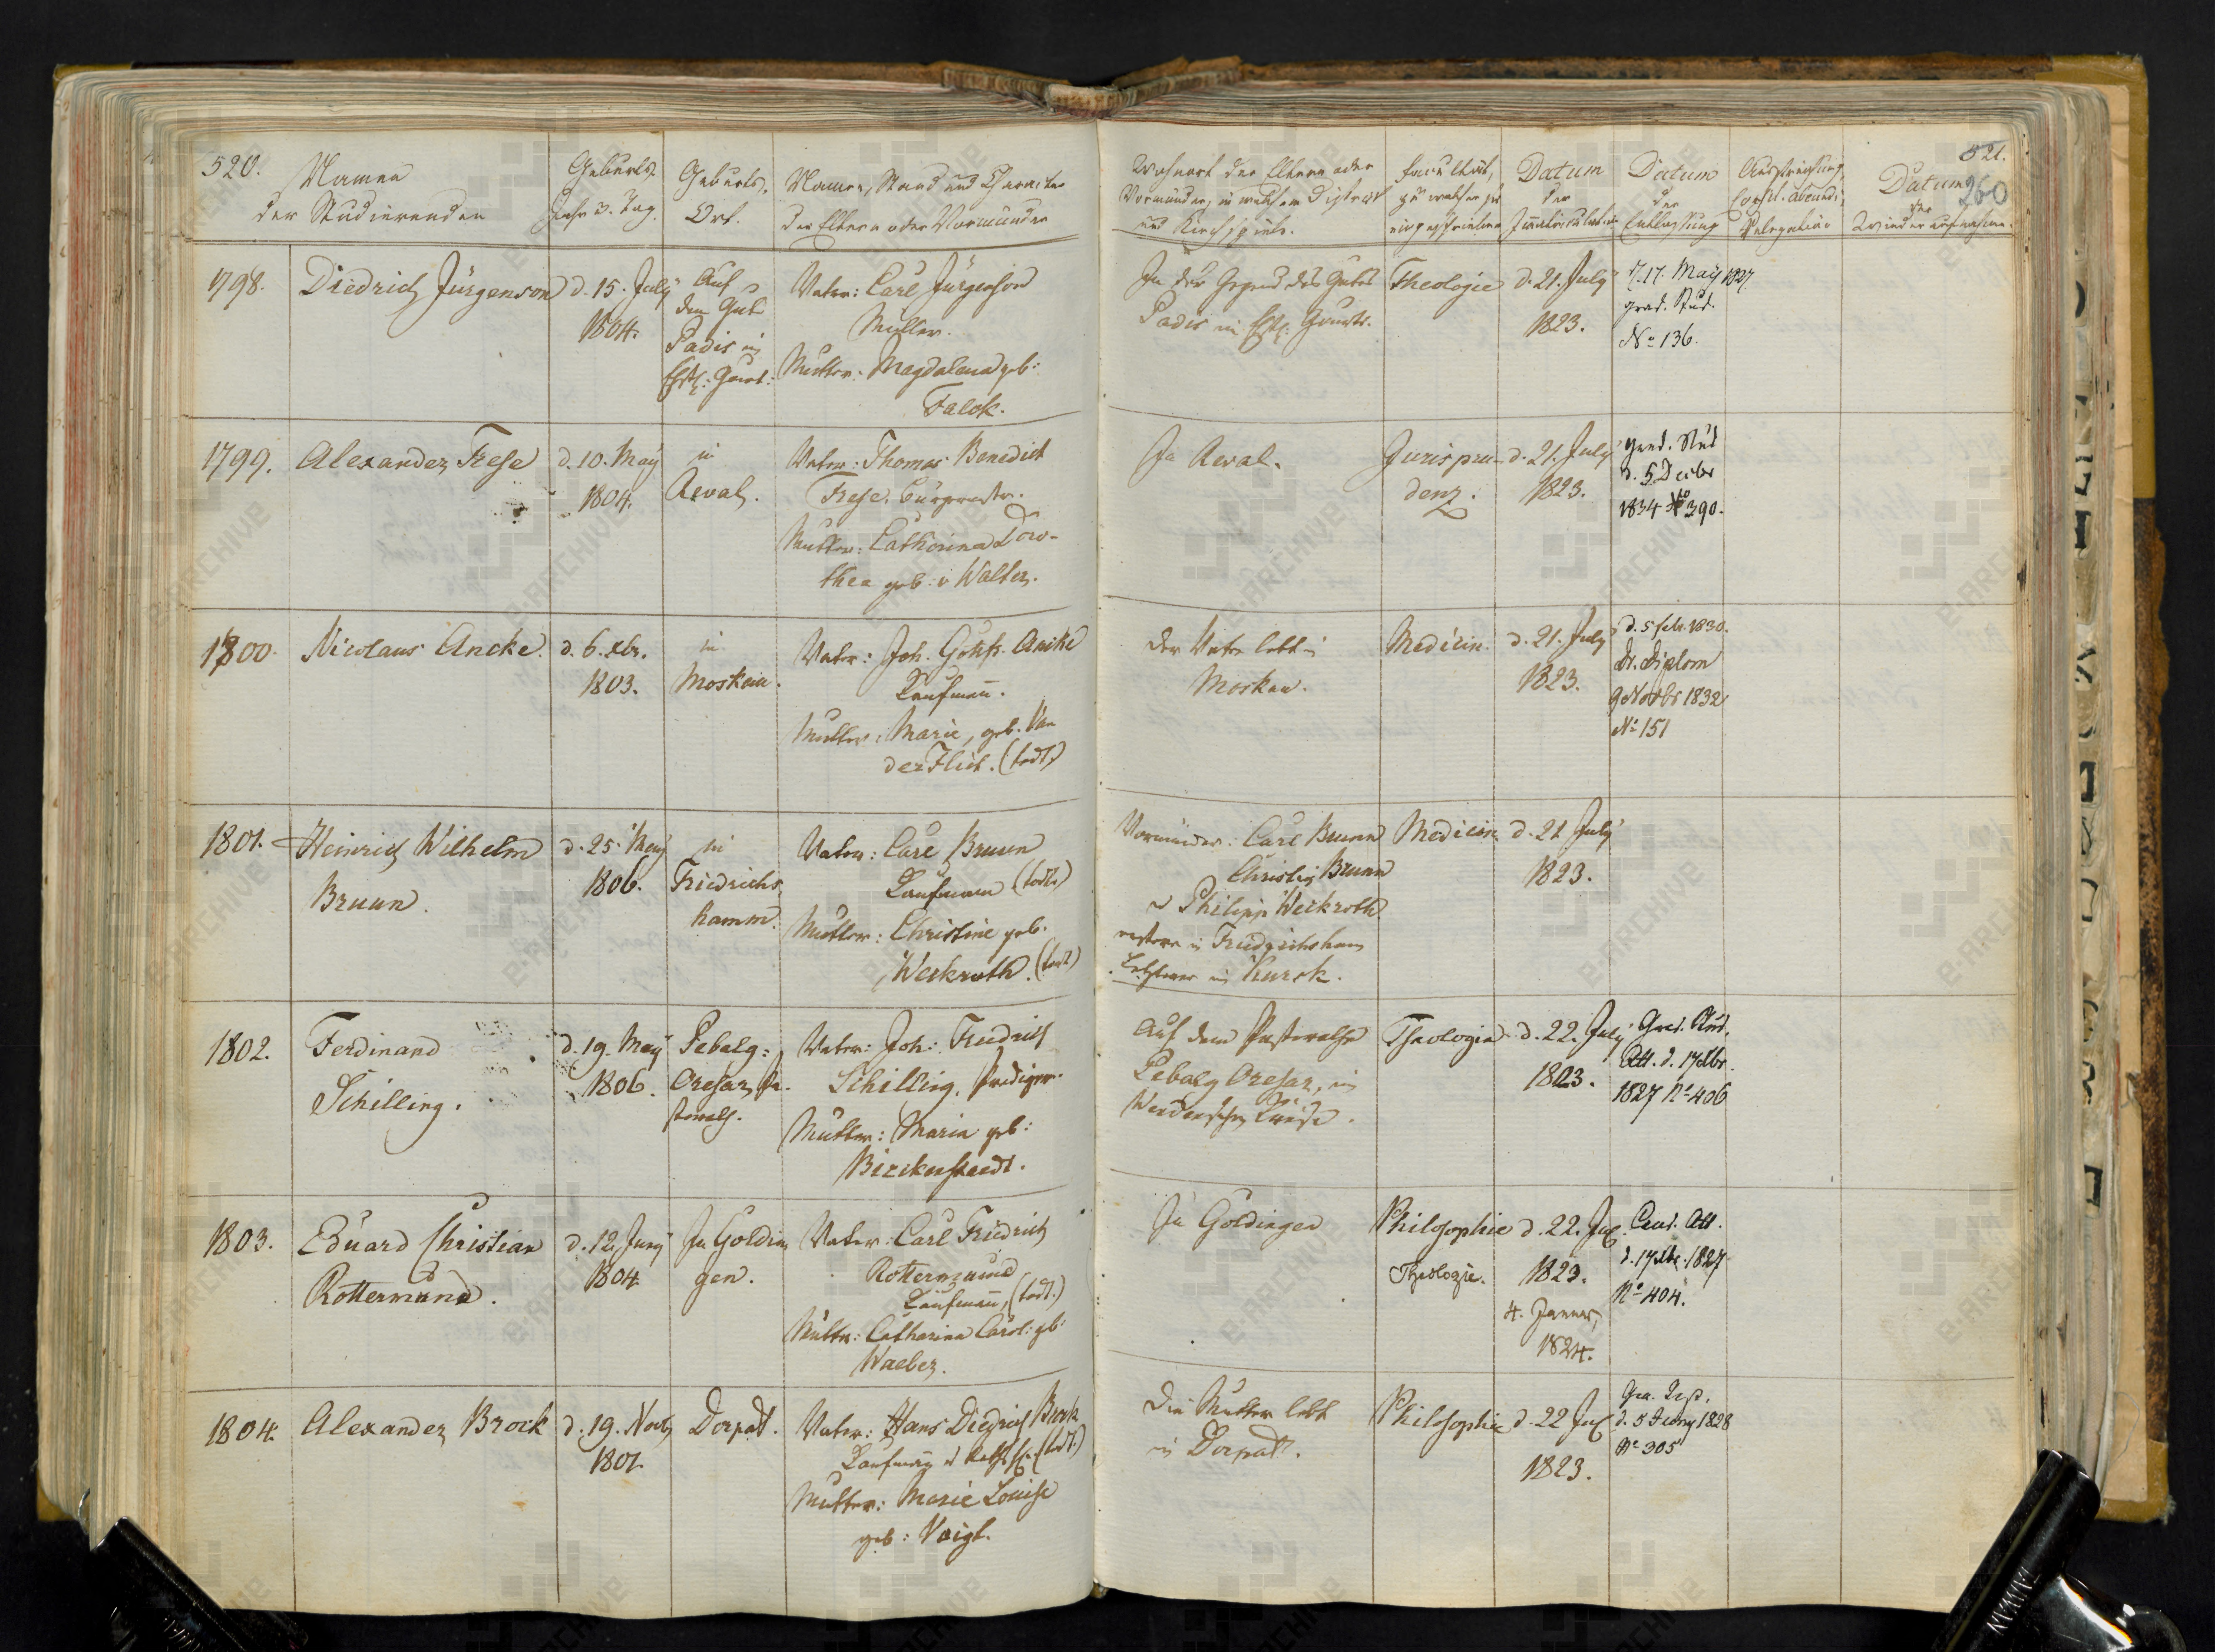 520.
Namen
der Studierenden
Geburts-
Jahr u. Tag.
Geburts-
Ort.
Namen, Stand und Character
der Eltern oder Vormünder
Wohnort der Eltern oder
Vormünder, in welchem District
und Kirchspiele.
Facultät,
zu welcher sie
eingeschrieben
Datum
der
Immatriculation
Datum
der
Entlassung
Consil. abeundi,
Relegation
Datum
der
Wiederaufnahme.
521.
260
1798.
Diedrich Jürgenson
d. 15. July
1804.
Auf
dem Gut
Padis in
Ehstl: Gouv:
Vater: Carl Jürgenson
Müller.
Mutter: Magdalena geb:
Falck.
In der Gegend des Gutes
Padis in Ehstl: Gouvts.
Theologie
d. 21. July
1823.
d. 17. May 1827
grad. Stud.
No 136.
1799.
Alexander Frese
d. 10. May
1804.
in
Reval.
Vater: Thomas Benedict
Frese, Bürgermstr.
Mutter: Catharina Doro-
thea geb: v Walter.
In Reval.
Jurispru-
denz.
d. 21. July
1823.
grad. Stud
d. 5 Decbr
1834 No 390.
1800.
Nicolaus Ancke.
d. 6. xbr.
1803.
in
Moskau.
Vater: Joh. Gottfr. Ancke
Kaufmañ.
Mutter: Marie, geb. Van
der Flict. (todt)
Der Vater lebt in
Moskau.
Medicin.
d. 21. July
1823.
d. 5 Febr. 1830.
Dr. Diplom
9 Novbr 1832
No 151
1801.
Heinrich Wilhelm
Bruun.
d. 25. May
1806.
in
Friedrichs
hamm.
Vater: Carl Bruun
Kaufmann (todt)
Mutter: Christine geb.
Weckroth. (todt)
Vormünder: Carl Bruun
Christian Bruun
u Philipp Weckroth
erstere in Friedrichsham
Letzterer in Kursk.
Medicin
d. 21 July
1823.
1802.
Ferdinand
Schilling.
d. 19. May
1806.
Pebalg:
Oresar, Pa-
storath.
Vater: Joh: Friedrich
Schilling, Prediger.
Mutter: Maria geb:
Birckenstaedt.
Auf dem Pastorathe
Pebalg Oresar, im
Wendenschen Kreise.
Theologie
d. 22. July
1823.
Grad. Stud.
Att. d. 17 xbr.
1827 No 406
1803.
Eduard Christian
Rottermund.
d. 12 Juny
1804
In Goldin
gen.
Vater: Carl Friedrich
Rottermund
Kaufmañ, (todt.)
Mutter: Catharina Carol: gb:
Waeber.
In Goldingen
Philosophie
Theologie.
d. 22. Jul.
1823.
4. Januar,
1824.
Cand. Att.
d. 17 xbr. 1827
No 404.
1804.
Alexander Brock
d. 19. Novb
1801.
Dorpat.
Vater: Hans Diedrich Brock
Kaufmañ u Rathsh. (todt.)
Mutter: Marie Louise
geb: Voigt.
Die Mutter lebt
in Dorpat.
Philosophie
d. 22 Jul
1823.
d. 5 Juny 1828
No 305